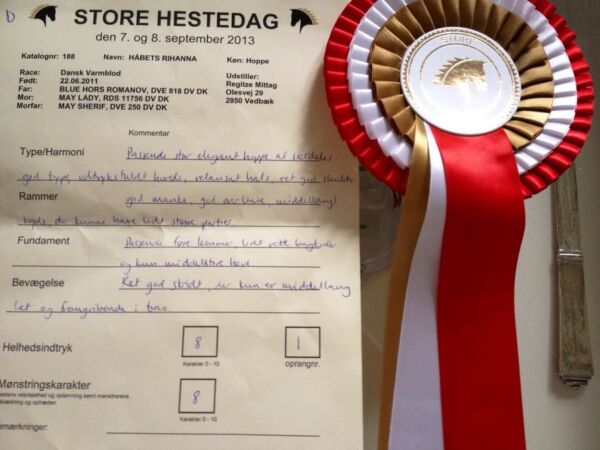 D
STORE HESTEDAG
den 7. og 8. september 2013
Katalognr: 188 Navn: HÅBETS RIHANNA Køn: Hoppe
Race: Dansk Varmblod
Født: 22.06.2011
Far: BLUE HORS ROMANOV, DVE 818 DV DK
Mor: MAY LADY, RDS 11756 DV DK
Morfar: MAY SHERIF, DVE 250 DV DK
Udstiller:
Regitze Mittag
Olesvej 29
2950 Vedbæk
Kommentar
Type/Harmoni Passende stor elegant hoppe af særdeles
god type, udtryksfuldt hoved, relansat hals, ret god skulder
Rammer god manke, god overlinie, middellangt
kryds, der kunne have lidt større partier
Fundament Passende føre lemmer, lidt rette bagkoder
og kun middelstore hove
Bevægelse Ret god skridt, der kun er middellang
let og fremgribende i trav.
Helhedsindtryk 8 1
Karakter 0 - 10 oprangnr.
Mønstringskarakter 8
Karakter 0 - 10
emærkninger:
STORE